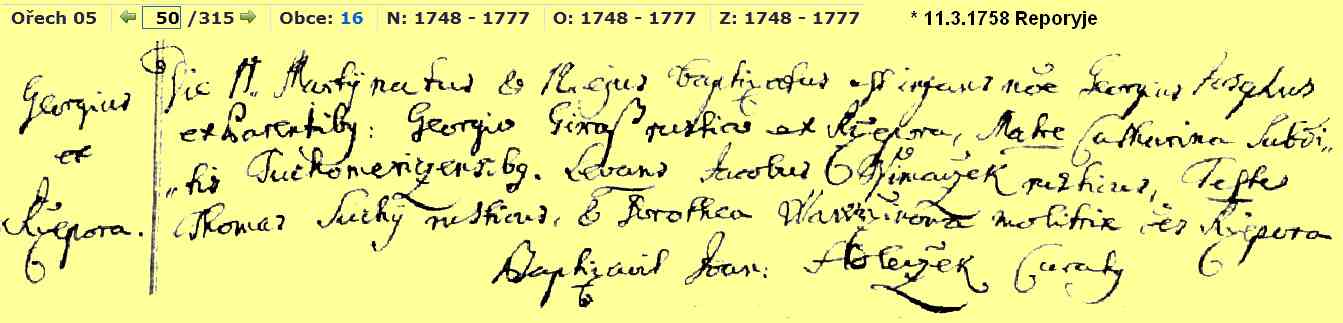 Ořech 05 50 /315 Obce: 16 N: 1748 - 1777 O: 1748 - 1777 Z: 1748 - 1777 * 11.3.1758 Reporyje
Die 11. Martÿ natus & Baptizatus est infans nõe Georgius Josephus
Georgius
ex Parentibg: Georgio Giraß rustico ex Ržepora, Matre Catharina Subdi„
et
„tis Tuchomeržizensibg. Levans Jacobus Ssimaczek rusticus, Testes
Ržepora. Thomas Suchÿ rusticus, & Dorothea Wawržinova molitrix ex Ržepora
Baptizavit Joan: Holeczek Curatg